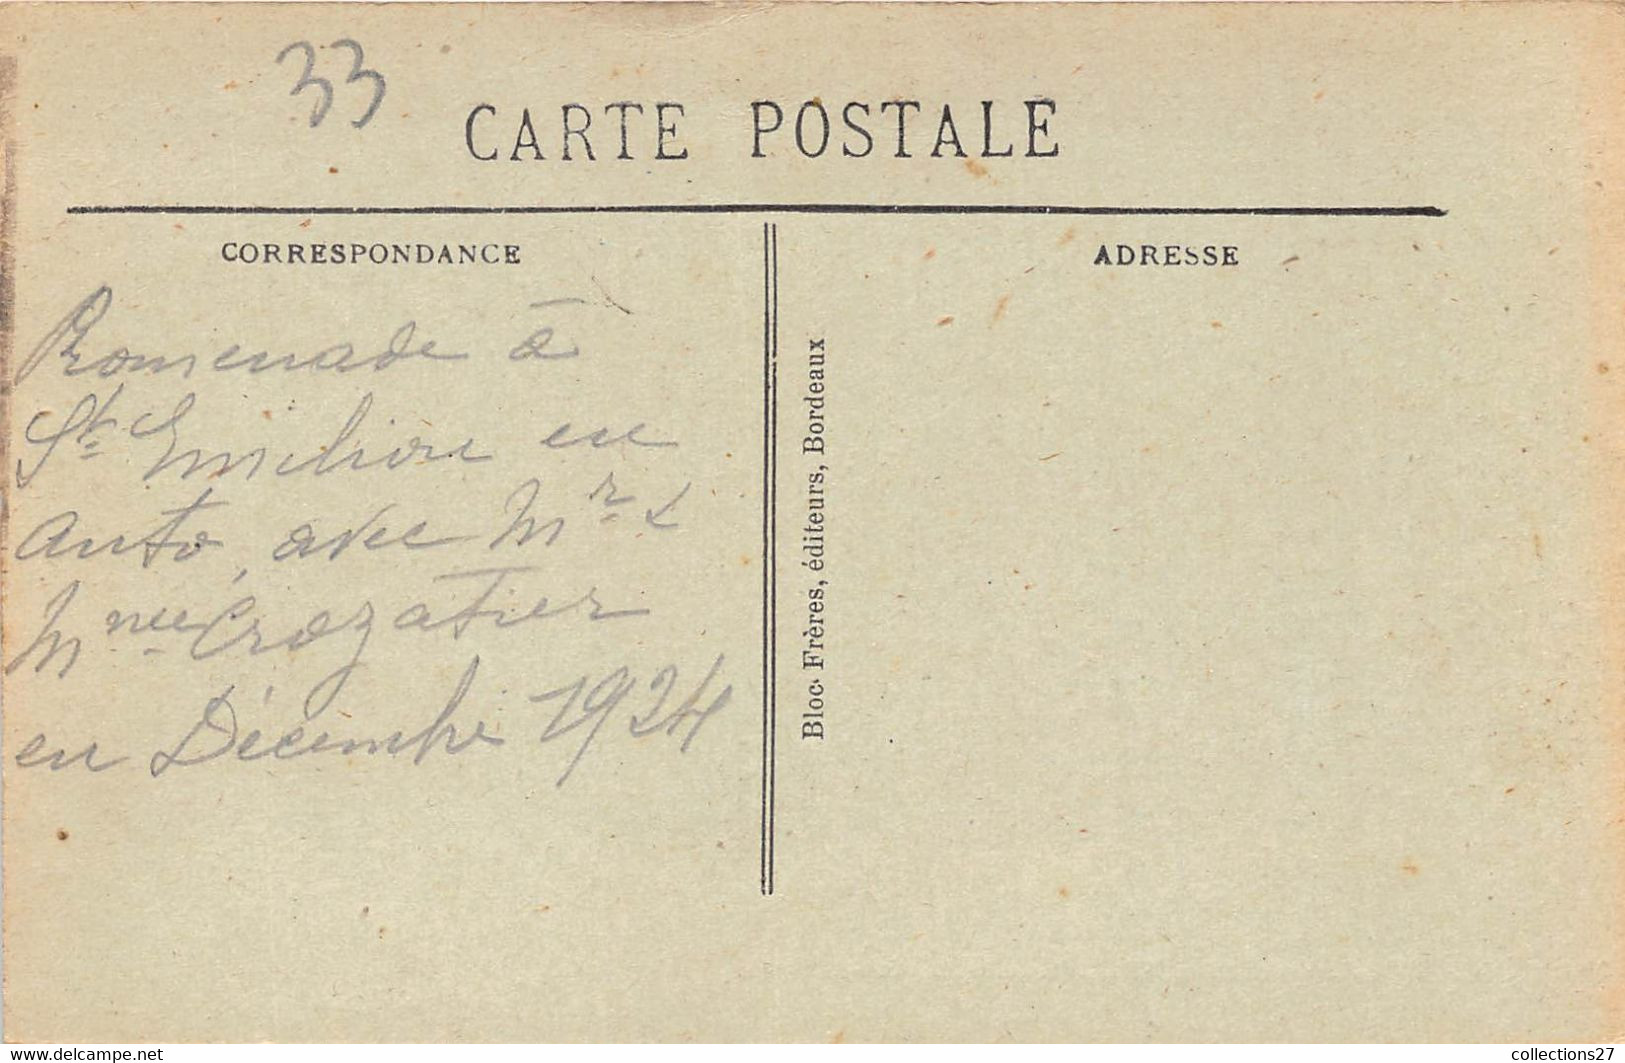 33
CARTE POSTALE
CORRESPONDANCE
Promenade à
St. Emilion en
auto, avec Mr. &
Mme Crozatier
en Décembre 1924
Bloc Frères, éditeurs, Bordeaux
ADRESSE
www.delcampe.net
collections27